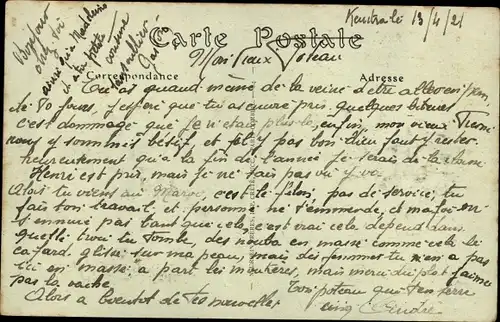 Kenitra le 13/4/21
Bonjour
chez toi
ainsi qu'à Madeleine
et à ta petite
cousine
Carte Postale
Mon vieux Poteau
Correspondance
Adresse
Tu as quand même de la veine d'être allé en perm
de 30 jours, j'espère que tu as encore pris quelques bitures
c'est dommage que je n'étais plus là, enfin, mon vieux
nous y sommes et fil pas bon dieu faut y rester
heureusement qu'à la fin de l'année je serais de la
Henri est pris, mais je ne sais pas où il va
Alors tu viens au Maroc, c'est le filon, pas de service, tu
fais ton travail et personne ne t'emmerde, et ma foi on
s'ennuie pas tant que cela, c'est vrai cela dépend dans
quelle trou tu tombe, des nouba en masse comme cela le
cafard glisse sur ma peau, mais des femmes tu n'en a pas
ici en masse, a part les moukères, mais merci du plat j'aime
pas la vache.
Ton poteau qui t'en serre
Alors a bientot de tes nouvelles
cinq André